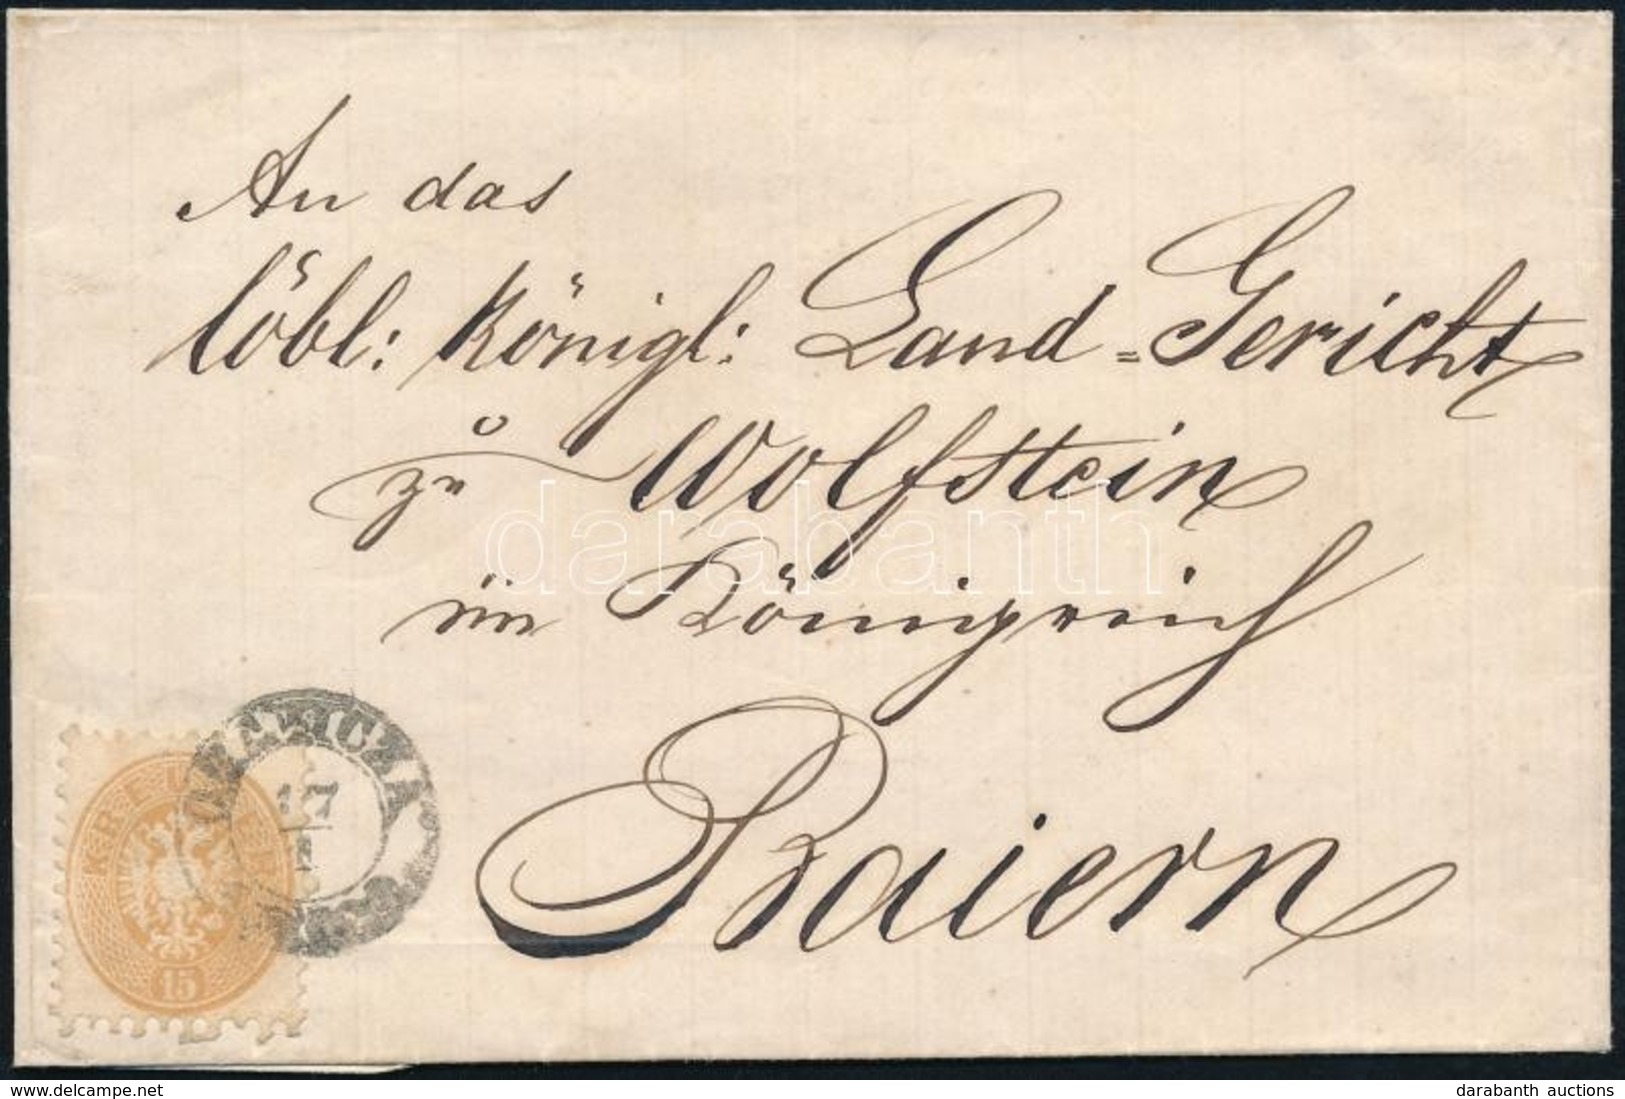 An das
löbl: Königl: Land=Gericht
zu Wolfstein
im Königreich
Baiern
darabanth
17
KREUZER
15
www.delcampe.net
darabanth auctions